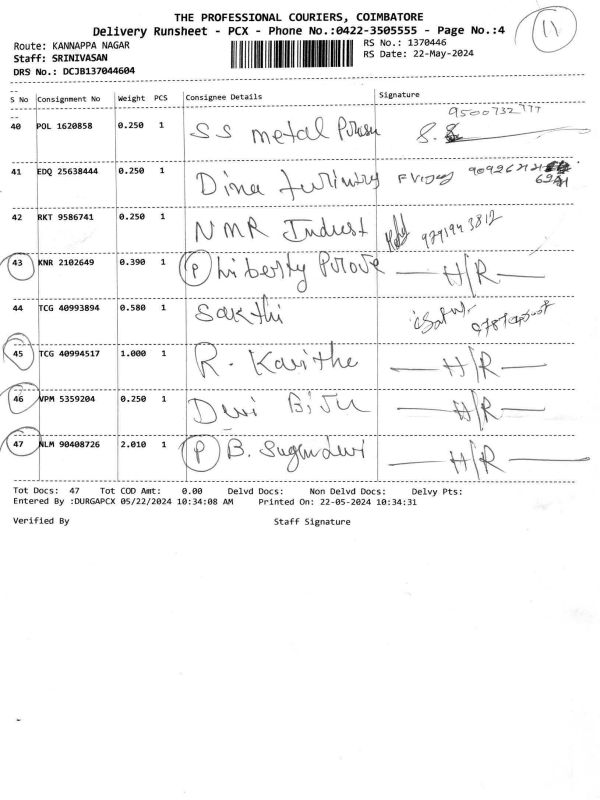 THE PROFESSIONAL COURIERS, COIMBATORE
Delivery Runsheet - PCX - Phone No.:0422-3505555 - Page No.:4
11
Route: KANNAPPA NAGAR
RS No.: 1370446
Staff: SRINIVASAN
RS Date: 22-May-2024
DRS No.: DCJB137044604
S No Consignment No Weight PCS Consignee Details Signature
40 POL 1620858 0.250 1 SS metal
41 EDQ 25638444 0.250 1 Dina
42 RKT 9586741 0.250 1 NMR Indust
43 KNR 2102649 0.390 1 P H/R
44 TCG 40993894 0.580 1 Sakthi
45 TCG 40994517 1.000 1 R. Kavitha H/R
46 VPM 5359204 0.250 1 H/R
47 NLM 90408726 2.010 1 P B. H/R
Tot Docs: 47 Tot COD Amt: 0.00 Delvd Docs: Non Delvd Docs: Delvy Pts:
Entered By :DURGAPCX 05/22/2024 10:34:08 AM Printed On: 22-05-2024 10:34:31
Verified By Staff Signature